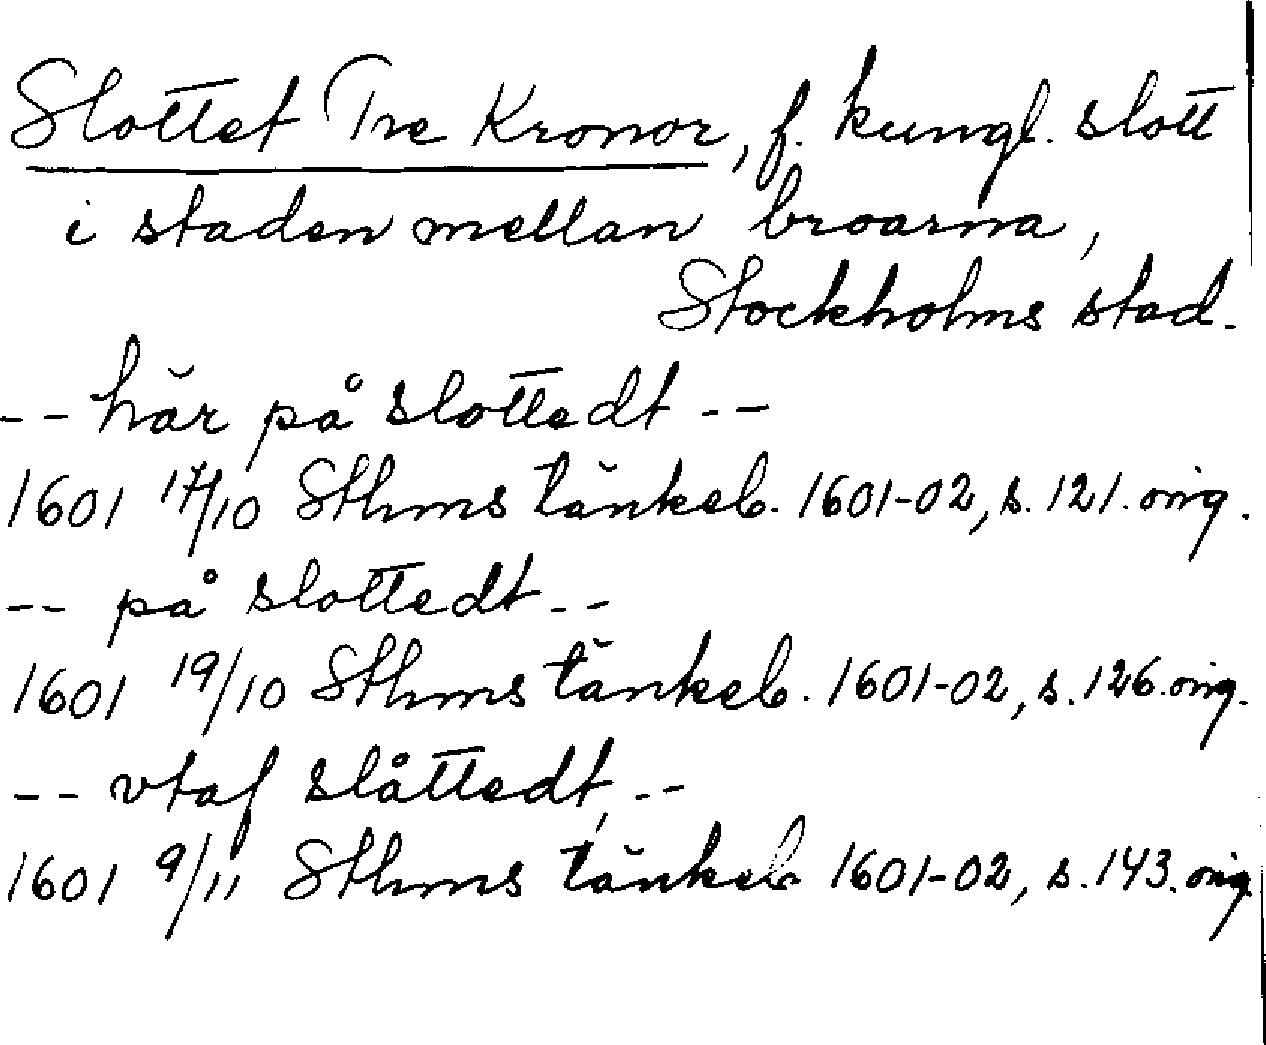 Slottet Tre Kronor, f. kungl. slott
i staden mellan broarna,
Stockholms stad.
-- här på slottedt --
1601 17/10 Sthms tänkeb. 1601-02, s. 121. orig.
-- på slottedt --
1601 19/10 Sthms tänkeb. 1601-02, s. 126. orig.
-- vtaf slåttedt, --
1601 9/11 Sthms tänkeb. 1601-02, s. 143. orig